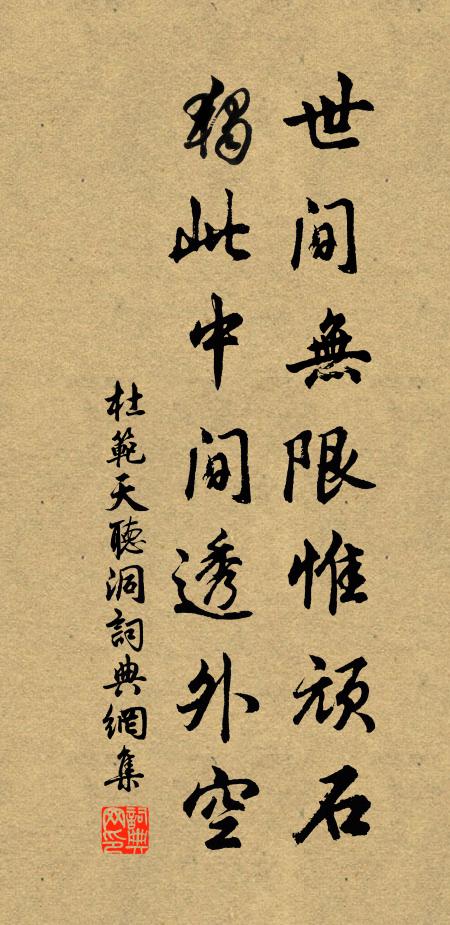 世間無限惟頑石
獨此中間透外空
杜範天聽洞詞典網集
詞典网印